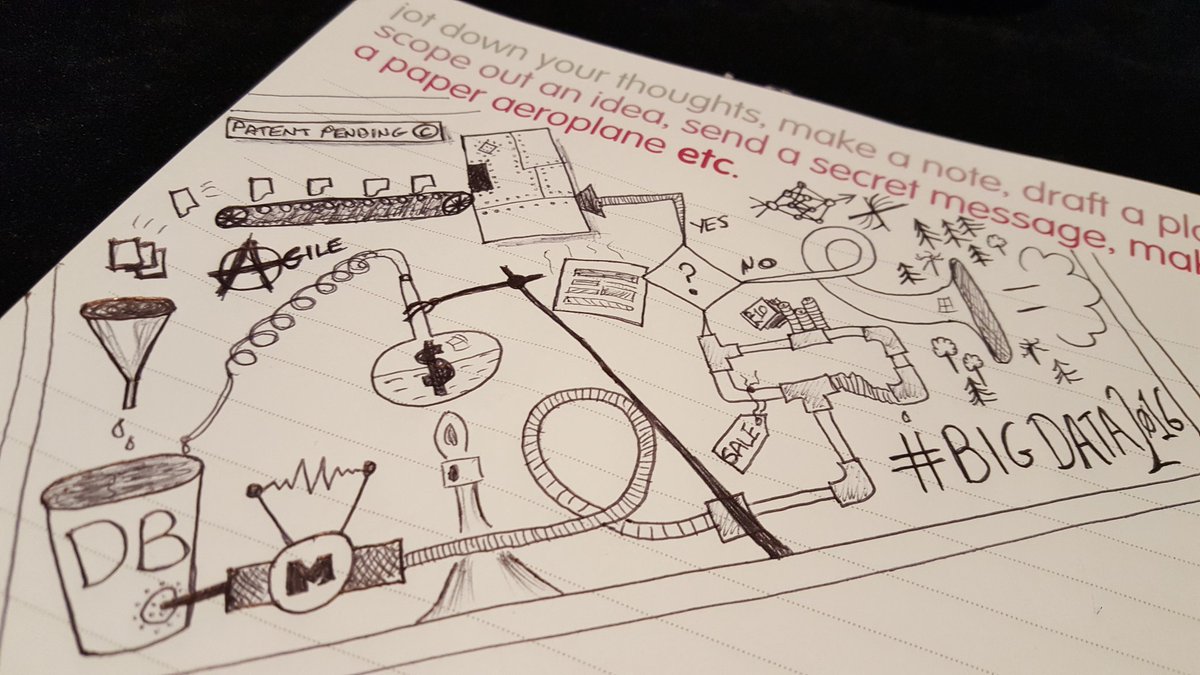 jot down your thoughts, make a note, draft a
scope out an idea, send a secret message,
a paper aeroplane etc.
PATENT PENDING ©
AGILE
YES
?
NO
$
SALE
#BIGDATA2016
DB
M